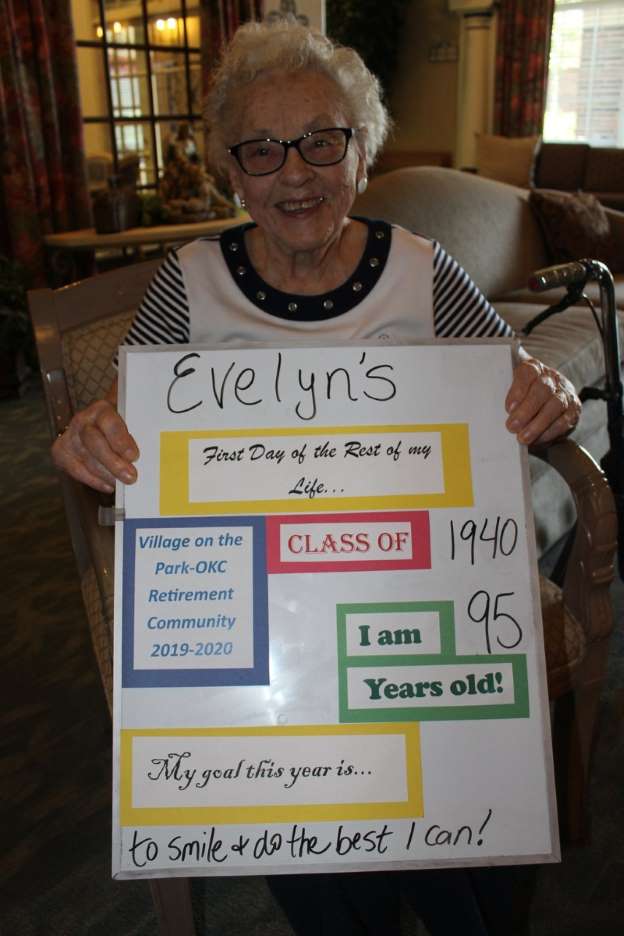 Evelyn's
First Day of the Rest of my
Life...
Village on the
Park-OKC
Retirement
Community
2019-2020
CLASS OF
1940
I am
95
Years old!
My goal this year is...
to smile & do the best I can!